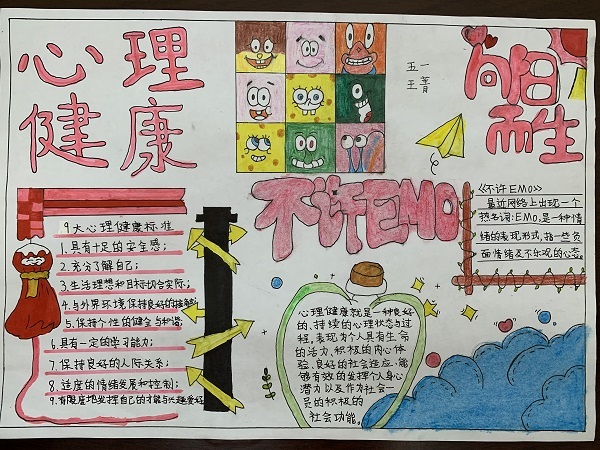 心理
健康
五一
王菁
向阳
而生
不许EMO
《不许EMO》
最近网络上出现一个
热名词:EMO,是一种情
绪的表现形式,指一些负
面情绪及不乐观的心态。
9大心理健康标准
1.具有十足的安全感;
2.充分了解自己;
3.生活理想和目标切合实际;
4.与外界环境保持良好的接触;
5.保持个性的健全与和谐;
6.具有一定的学习能力;
7.保持良好的人际关系;
8.适度的情绪发展和控制;
9.有限度地发挥自己的才能与兴趣爱好
心理健康就是一种良好
的、持续的心理状态与过
程,表现为个人具有生命
的活力、积极的内心体
验、良好的社会适应,能
够有效的发挥个人身心
潜力以及作为社会一
员的积极的
社会功能。